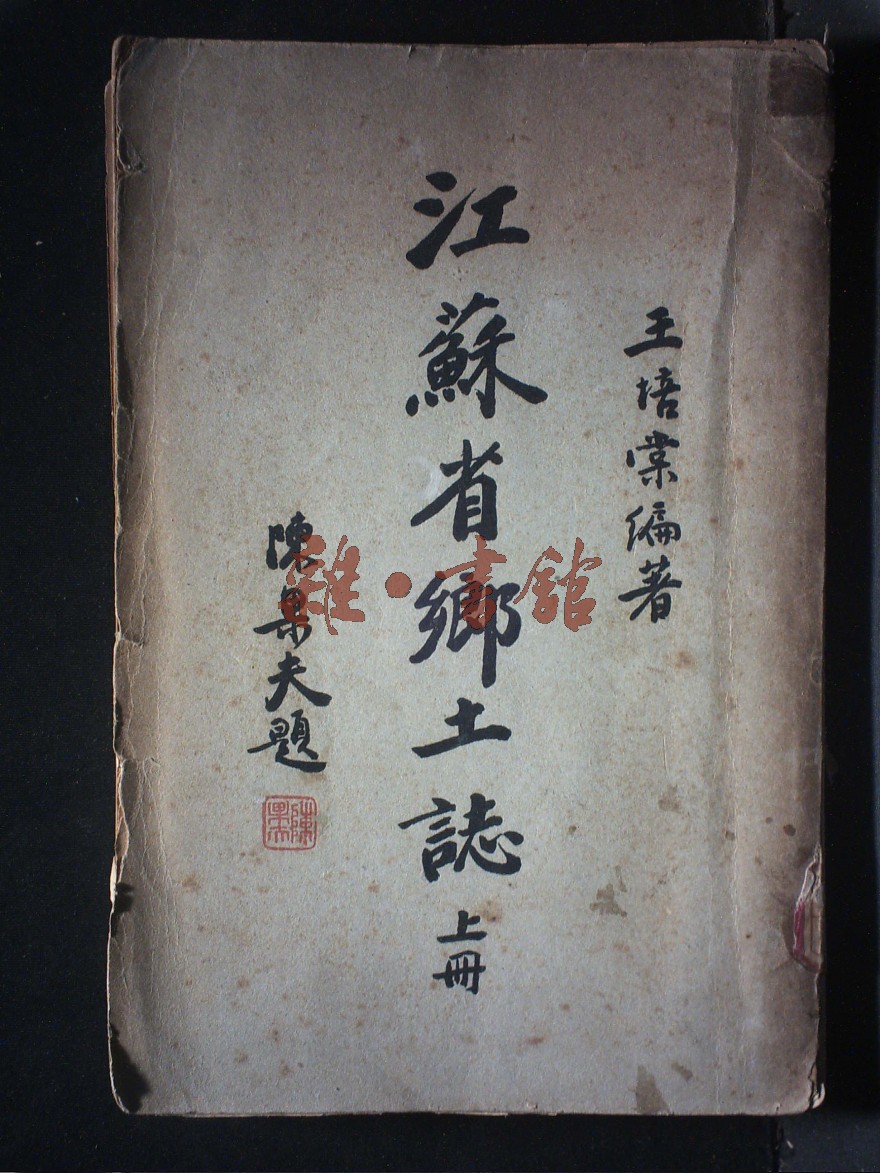 王培棠編著
江蘇省鄉土誌 上冊
陳果夫題
陳果夫
雜·書館